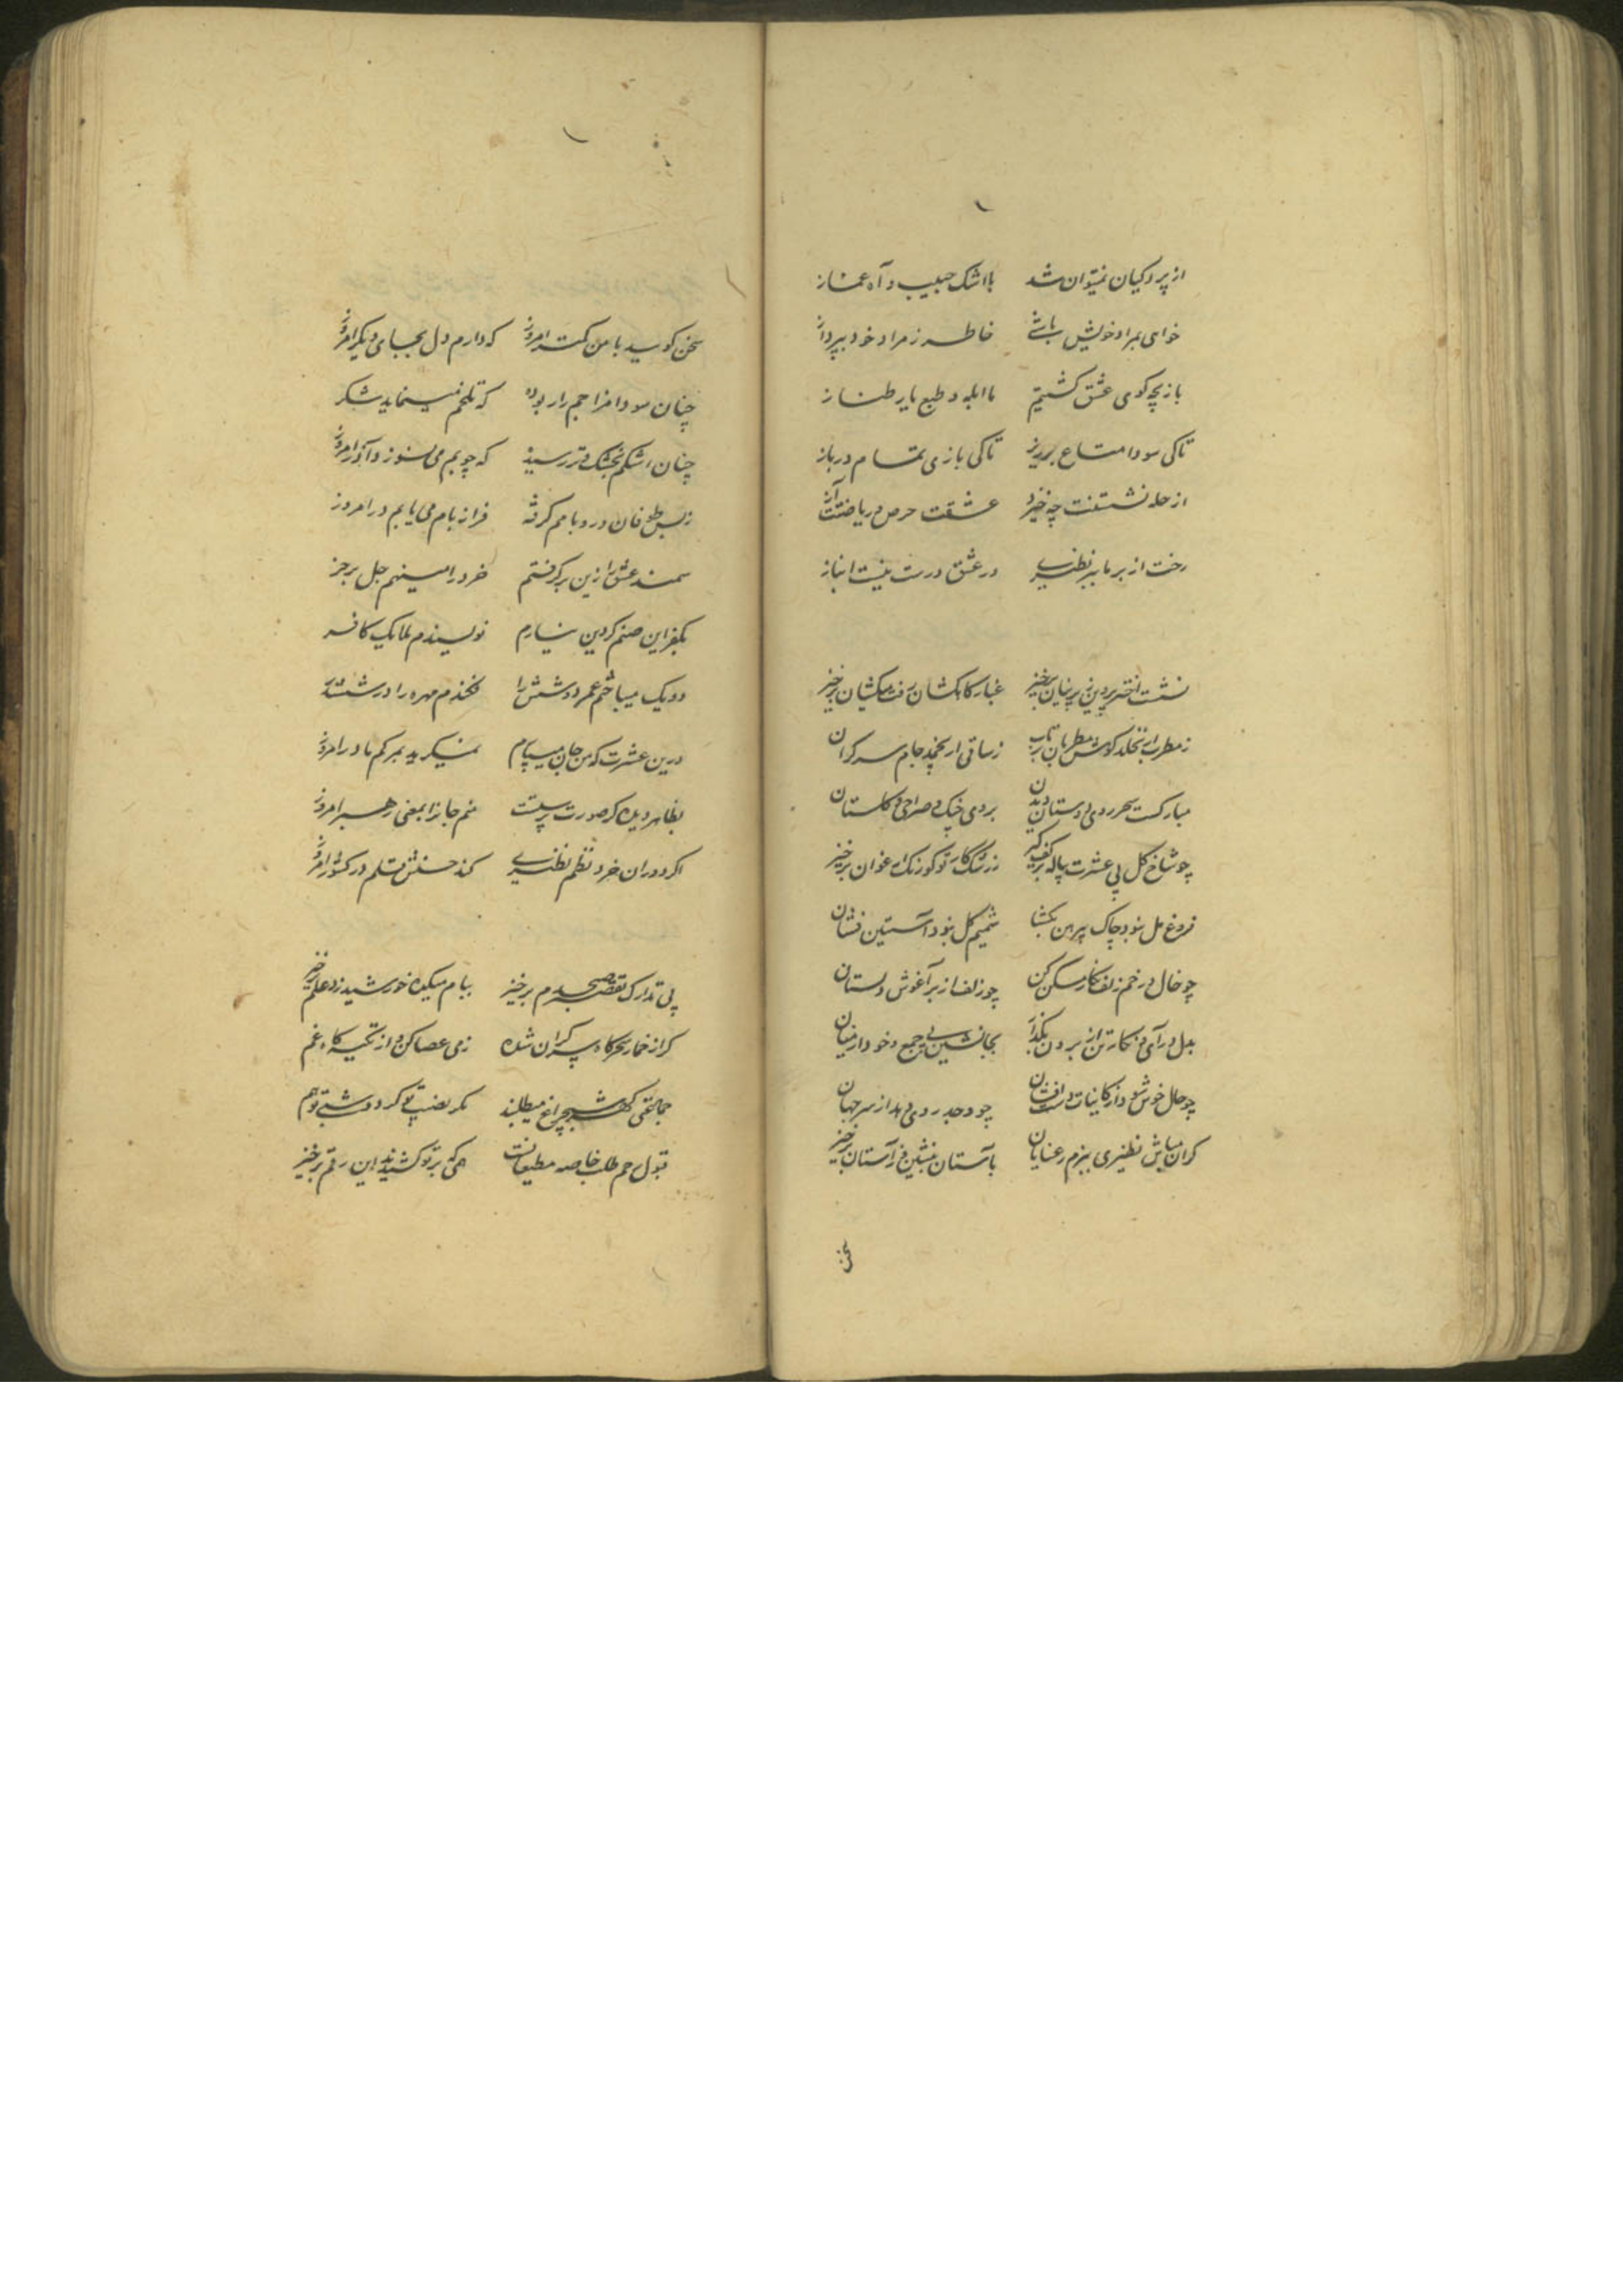 از پردکیان نمیتوان شد بااشک حبیب و آه غماز
خواهی بمراد خویش باشی خاطر ز مراد خود بپرداز
بازیچه کوی عشق کشتیم ما ابله و طبع یار طناز
تاکی سودا متاع برریز تاکی بازی تمام درباز
از حله نشستنت چه خیزد عشقت حرص و ریاضتت آز
رخت از بر ما ببر نظیری در عشق درست نیست انباز
نشست اختر پروین ز پرنیان برخیز غبار کاهکشان رفت میکشان برخیز
ز مطرب ار نخلد کوش مطربان زساقی ار نخمد جام سرکران
مبارکست سحر روی دوستان دیدن بروی خیک و صراحی و کلستان
چو شاخ کل پی عشرت پیاله بر کف کیر ز رشک کار تو کو رنک ارغوان برخیز
فروغ مل بنود چاک پیرهن بکشا شمیم کل بنود آستین فشان
چو خال در خم زلف نکار مسکن کن چو زلف از بر آغوش دلستان
بدل درآی و نکارتن از برون بکذار بجا نشین جمع و خود از میان
چو حال خوش شود از کاینات دست افشان چو وجد روی دهد از سر جهان
کران مباش نظیری ببزم رعنایان بآستان بنشین وز آستان برخیز
سخن
سخن کوسید با من کمتر امروز که دارم دل بجای دیکر امروز
چنان سودا مزاجم را ربوده که تلخم مینماید شکر
چنان اشکم بخشک و تر رسیده که چوبم می نسوزد آذر امروز
ز بس طوفان درد بامم کرفته فراز بام می یابم در امروز
سمند عشق را زین برکرفتم خرد را مینهم جل بر خر
بکفر این صنم کر دین نیارم نویسندم ملایک کافر
دو یک میباختم عمر دو شش را فکندم مهره را در ششدر
درین عشرت که من جان میسپارم نمیکرید بمرکم مادر امروز
بظاهر دیده کر صورت پرستست منم جانرا بمعنی رهبر امروز
اکر دوران خرد نظم نظیری کند حسنش قلم در کشور امروز
پی تدارک تقصیر صبحدم برخیز ببام میکده خورشید زد علم برخیز
کر از خمار سحرکاه سر کران شده ز می عصا کن و از تکیه کاه غم
جماعتی کهر شبچراغ میطلبند مکر نصیب تو کردد شبی تو هم
قبول رحم طلب خاصه مطیعانست همی که بر تو کشیدند این رقم برخیز